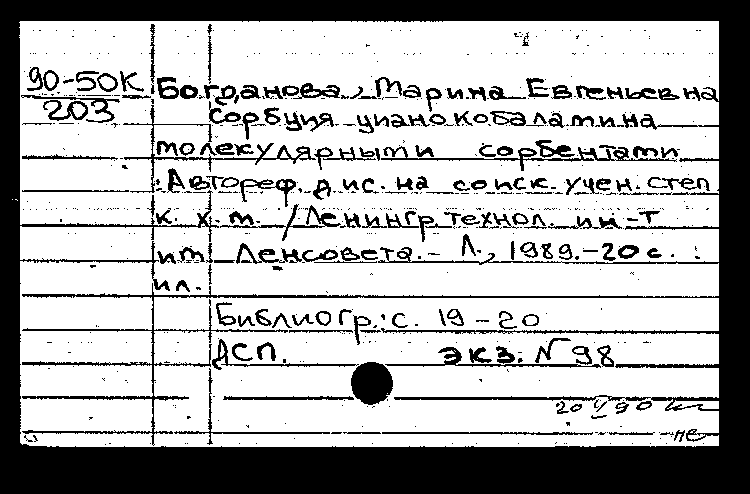 90-50К
203
Богданова, Марина Евгеньевна
Сорбция цианокобаламина
молекулярными сорбентами
:Автореф. дис. на соиск. учен. степ
к. х. т. /Ленингр. технол. ин-т
им Ленсовета. - Л., 1989. - 20 с. :
ил.
Библиогр.: с. 19-20
ДСП. экз. N 98
20 V 90